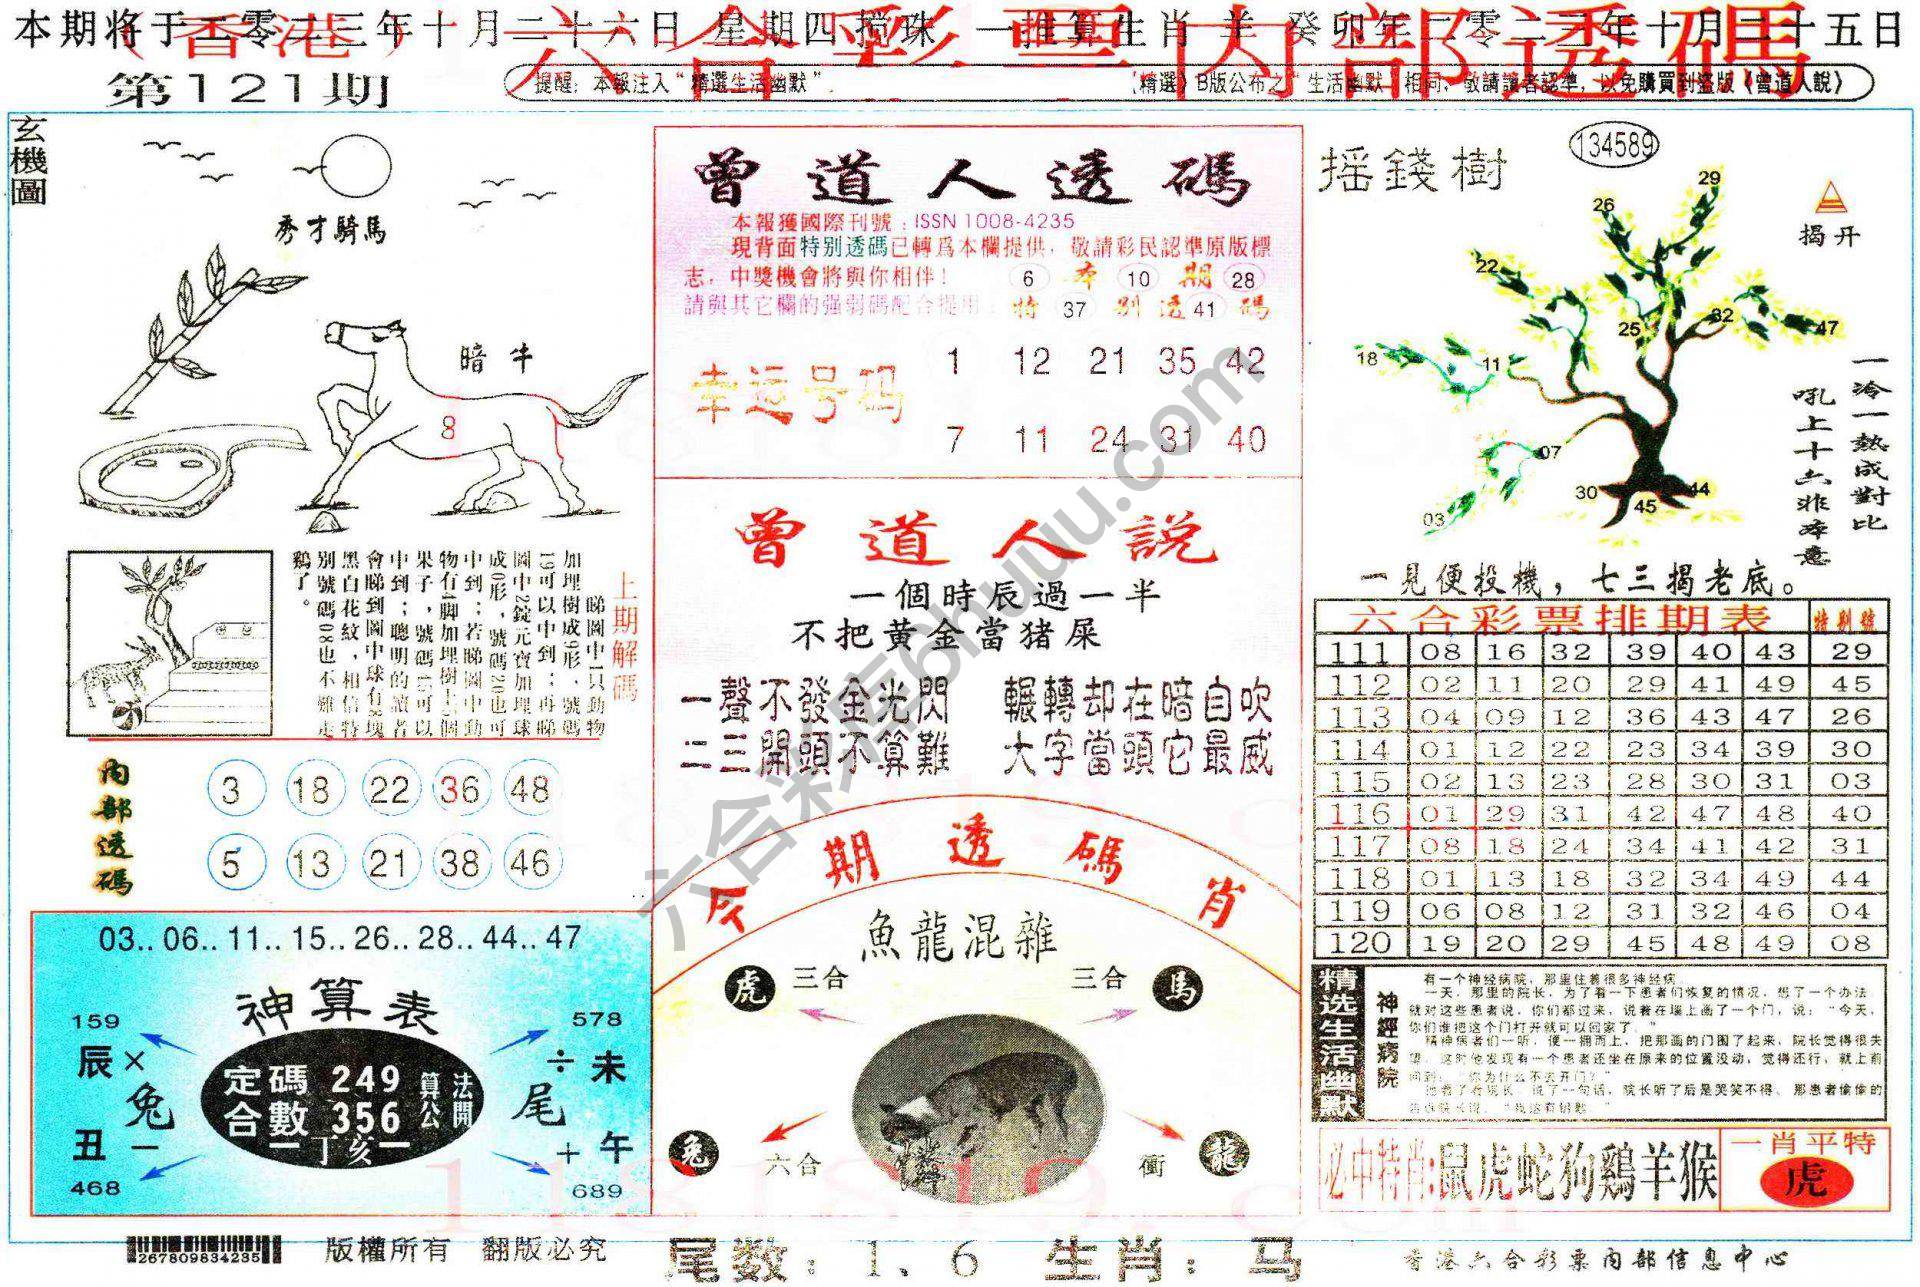 本期将于二零二三年十月二十六日 星期四搅珠 一推算生肖 羊 癸卯年二零二三年十月二十五日
(香港)六合彩票内部透碼
第121期
提醒: 本報注入“精選生活幽默”
(精選) B版公布之“生活幽默”相同, 敬請讀者認準, 以免購買到盗版《曾道人說》
玄機圖
秀才騎馬
暗牛
8
上期解碼
睇圖中1只動物
加埋樹成9形,號碼
19可以中到;再睇
圖中2錠元寶加埋球
成0形,號碼20也可
中到;若睇圖中動
物有4脚加埋樹上5個
果子,號碼45可以
中到;聰明的讀者
會睇到圖中球有8塊
黑白花紋,相信特
别號碼08也不難走
鷄了。
内部透碼
3 18 22 36 48
5 13 21 38 46
03..06..11..15..26..28..44..47
神算表
159
578
辰 × 兔
÷ 未 尾
定碼 249
合數 356
算公 法開
一丁亥一
丑 一
+ 午
468
689
曾道人透碼
本報獲國際刊號:ISSN 1008-4235
現背面特别透碼已轉爲本欄提供, 敬請彩民認準原版標
志, 中獎機會將與你相伴!
請與其它欄的强弱碼配合提用:
6 本 10 期 28
特 37 别 透 41 碼
幸运号码
1 12 21 35 42
7 11 24 31 40
曾道人説
一個時辰過一半
不把黄金當猪屎
一聲不發金光閃 輾轉却在暗自吹
二三開頭不算難 大字當頭它最威
今期透碼肖
魚龍混雜
虎 三合
三合 馬
兔 六合
衝 龍
摇錢樹
134589
揭开
29
26
22
25
32
47
18
11
07
30
44
45
03
一冷一熱成對比
吼上十六非本意
一見便投機, 七三揭老底。
六合彩票排期表 特别號
111 08 16 32 39 40 43 29
112 02 11 20 29 41 49 45
113 04 09 12 36 43 47 26
114 01 12 22 23 34 39 30
115 02 13 23 28 30 31 03
116 01 29 31 42 47 48 40
117 08 18 24 34 41 42 31
118 01 13 18 32 34 49 44
119 06 08 12 31 32 46 04
120 19 20 29 45 48 49 08
精选生活幽默
神經病院
有一个神经病院, 那里住着很多神经病
一天, 那里的院长, 为了看一下患者们恢复的情况, 想了一个办法
就对这些患者说, 你们都过来, 说着在墙上画了一个门, 说: “今天,
你们谁把这个门打开就可以回家了。”
精神病者们一听, 便一拥而上, 把那画的门围了起来, 院长觉得很失
望。这时他发现有一个患者还坐在原来的位置没动, 觉得还行, 就上前
问到: “你为什么不去开门?”
他看了看院长 说了一句话, 院长听了后是哭笑不得、那患者偷偷的
告诉院长说, “我这有钥匙。”
必中特肖:鼠虎蛇狗鷄羊猴
一肖平特
虎
267809834235
版權所有 翻版必究
尾数: 1、6 生肖: 马
香港六合彩票内部信息中心
六合彩库6huuu.com